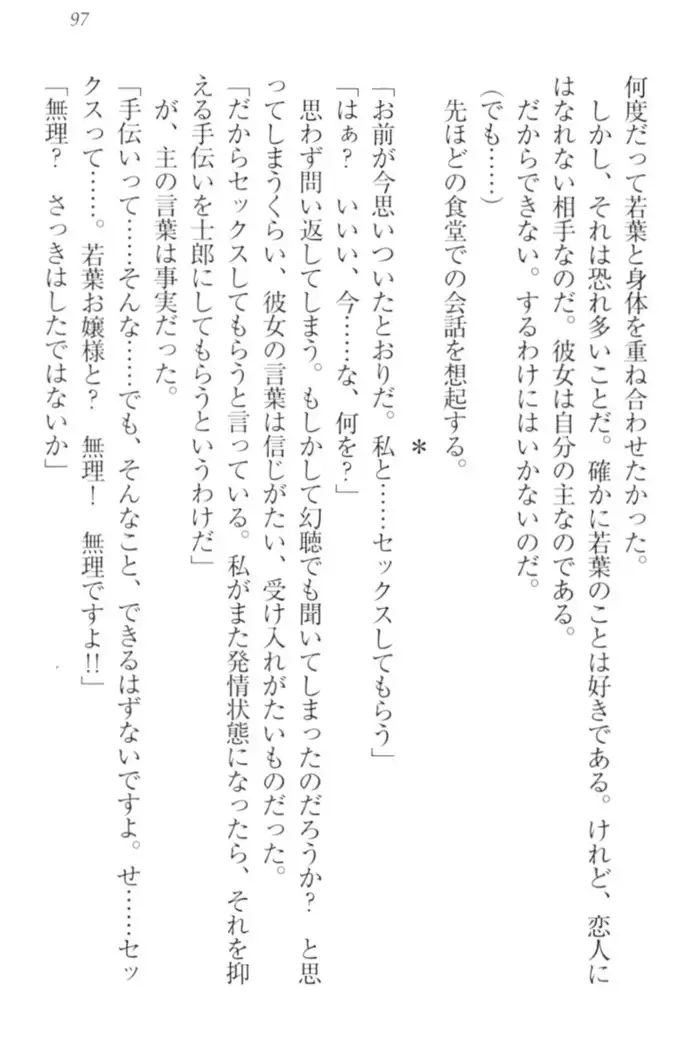 97
何度だって若葉と身体を重ね合わせたかった。
しかし、それは恐れ多いことだ。確かに若葉のことは好きである。けれど、恋人に
はなれない相手なのだ。彼女は自分の主なのである。
だからできない。するわけにはいかないのだ。
(でも……)
先ほどの食堂での会話を想起する。
*
「お前が今思いついたとおりだ。私と……セックスしてもらう」
「はぁ？　いいい、今……な、何を？」
思わず問い返してしまう。もしかして幻聴でも聞いてしまったのだろうか？　と思
ってしまうくらい、彼女の言葉は信じがたい、受け入れがたいものだった。
「だからセックスしてもらうと言っている。私がまた発情状態になったら、それを抑
える手伝いを士郎にしてもらうというわけだ」
が、主の言葉は事実だった。
「手伝いって……そんな……でも、そんなこと、できるはずないですよ。せ……セッ
クスって……。若葉お嬢様と？　無理！　無理ですよ!!」
「無理？　さっきはしたではないか」